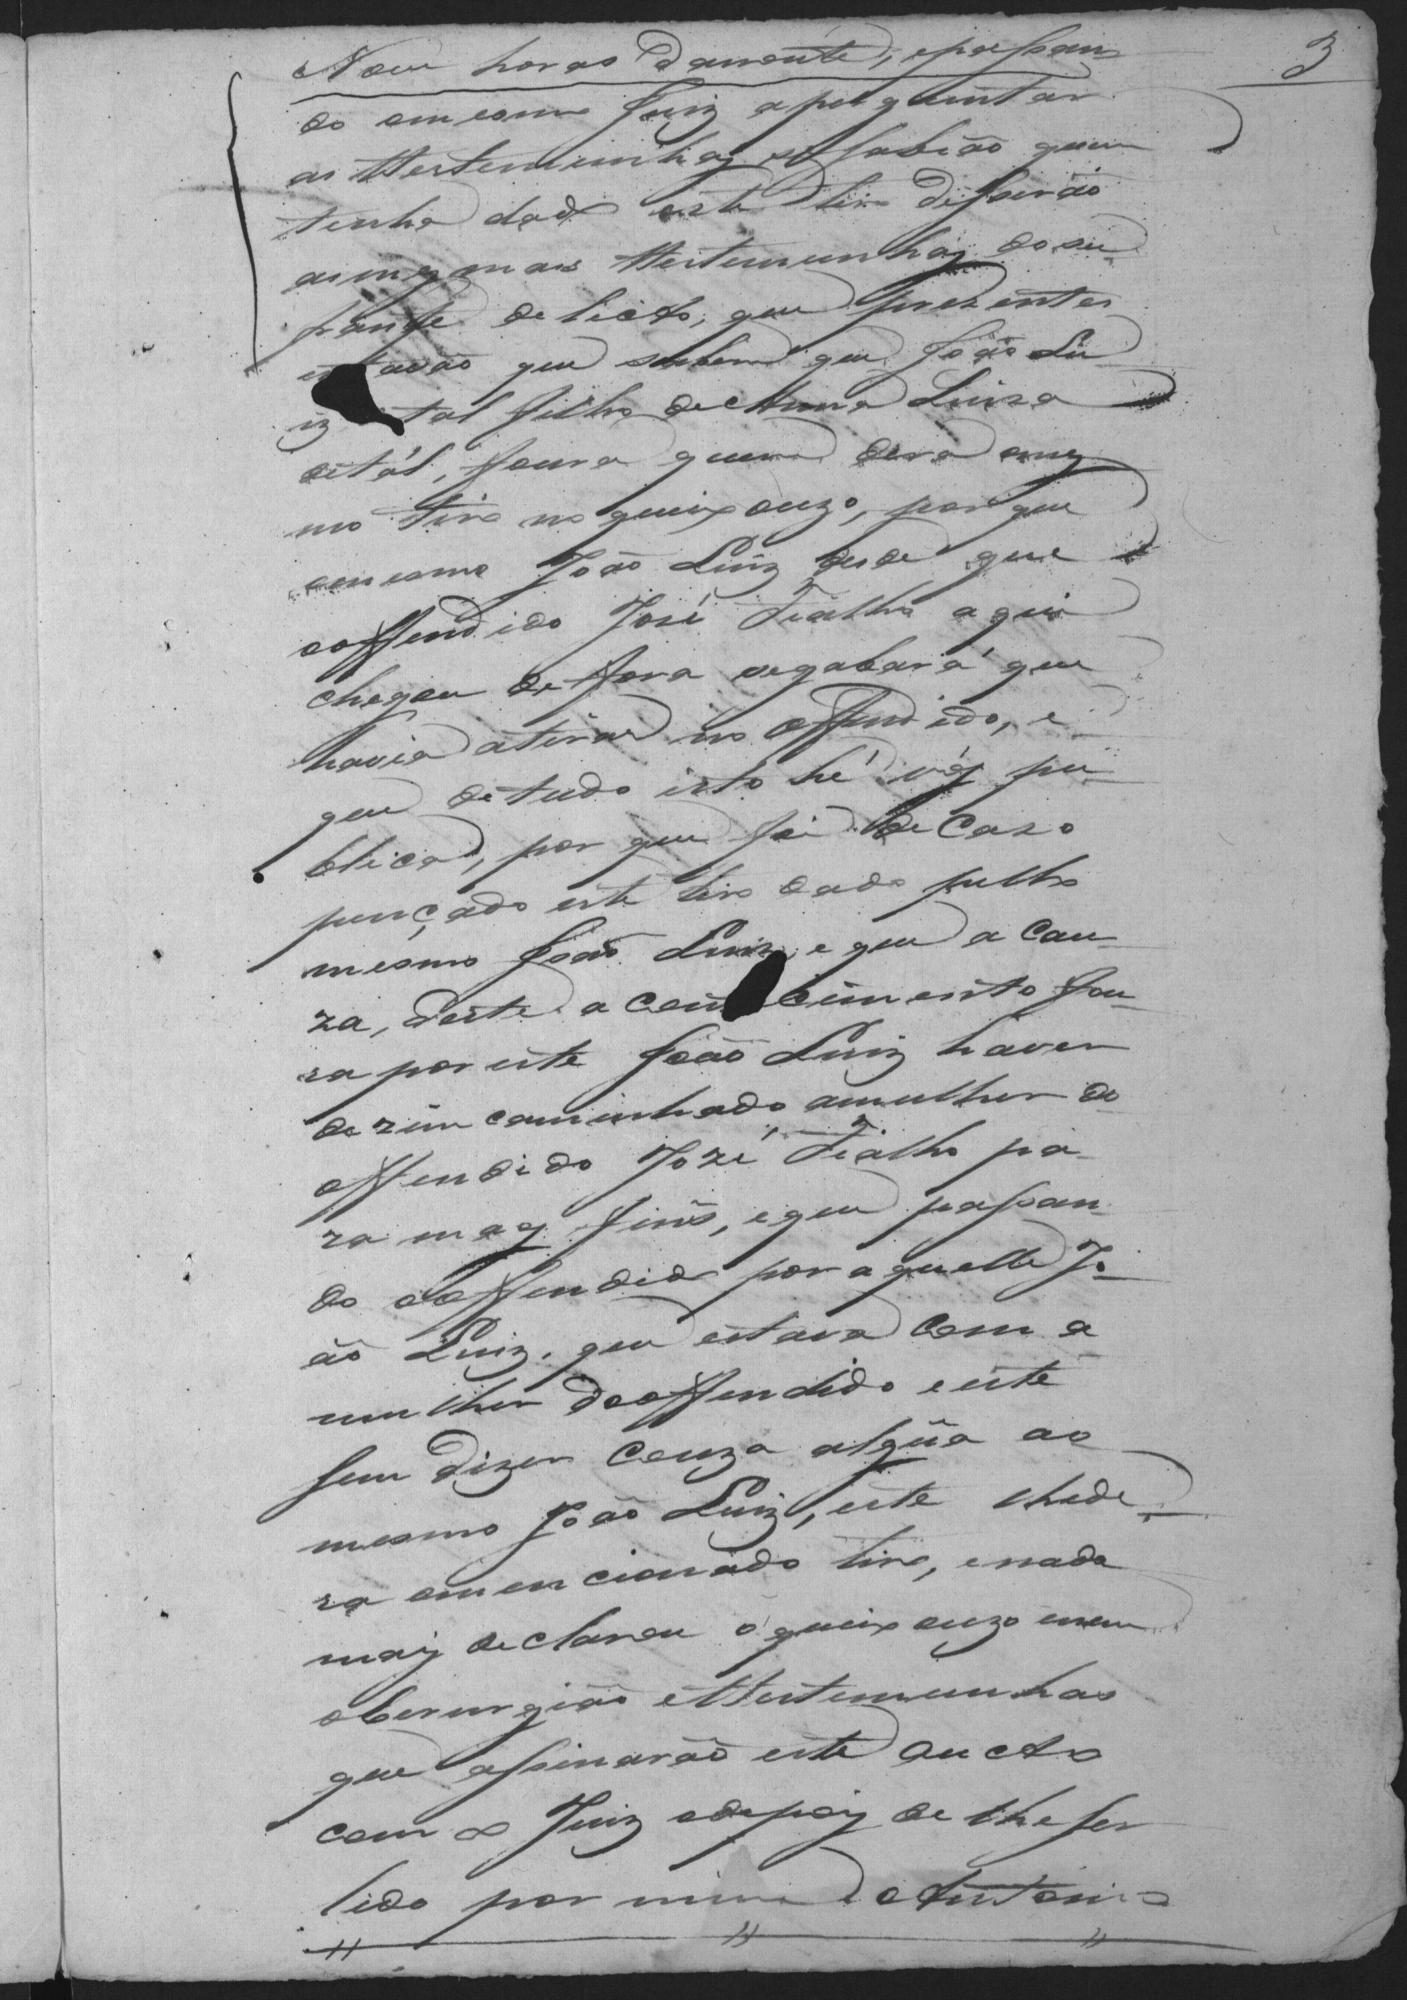 3
Nove horas danoute, epassan
do omesmo Juiz aperguntar
as ttestemunhas se sabião quem
tenha dado este tiro disserão
asmesmas ttestemunhas do su
prasse delicto, que prezentes
estavão que sabem que João Lu
iz tal filho de Anna Luiza
detál, foura quem dera omes
mo tiro no queixouzo, por que
omesmo João Luiz desde que
ooffendido José Fialho aqui
chegou de fora segabará que
havia atirar no offendido, e
que detudo isto hé vós pu
blica, por que foi de Cazo
pençado este tiro dado pello
mesmo João Luiz, e que a Cau
za, deste acontecimento fou
ra por este João Luiz haver
dezimcaminhado amulher do
offendido Jozé Fialho pa
ra maos fins, eque passan
do ooffendido por aquelle Jo
ão Luiz, que estava Com a
mulher dooffendido e este
sem dizer Couza algũa ao
mesmo João Luiz, este lhede
ra omencionado tiro, enada
mais declarou o queixouzo nem
oCerurgião ettestemunhas
que assinarão este aucto
com o Juiz edepois de lheser
lido por mim e Antonio